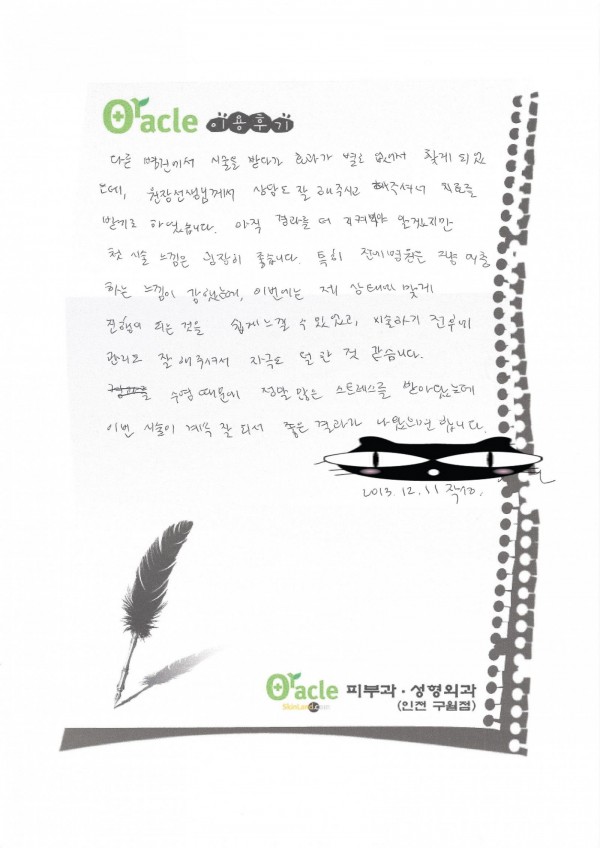 Oracle 이용후기
다른 병원에서 시술을 받다가 효과가 별로 없어서 찾게 되었
는데, 원장선생님께서 상담도 잘 해주시고 해주셔서 치료를
받기로 하였습니다. 아직 결과를 더 지켜봐야 알겠지만
첫 시술 느낌은 굉장히 좋습니다. 특히 전에 병원은 그냥
하는 느낌이 강했는데, 이번에는 제 상태에 맞게
진행이 되는 것을 쉽게 느낄 수 있었고, 시술하기 전부터
관리도 잘 해주셔서 자극도 덜 한 것 같습니다.
수염 때문에 정말 많은 스트레스를 받아왔는데
이번 시술이 계속 잘 되서 좋은 결과가 나왔으면 합니다.
2013. 12. 11 작성.
Oracle 피부과·성형외과
SkinLand.com (인천 구월점)